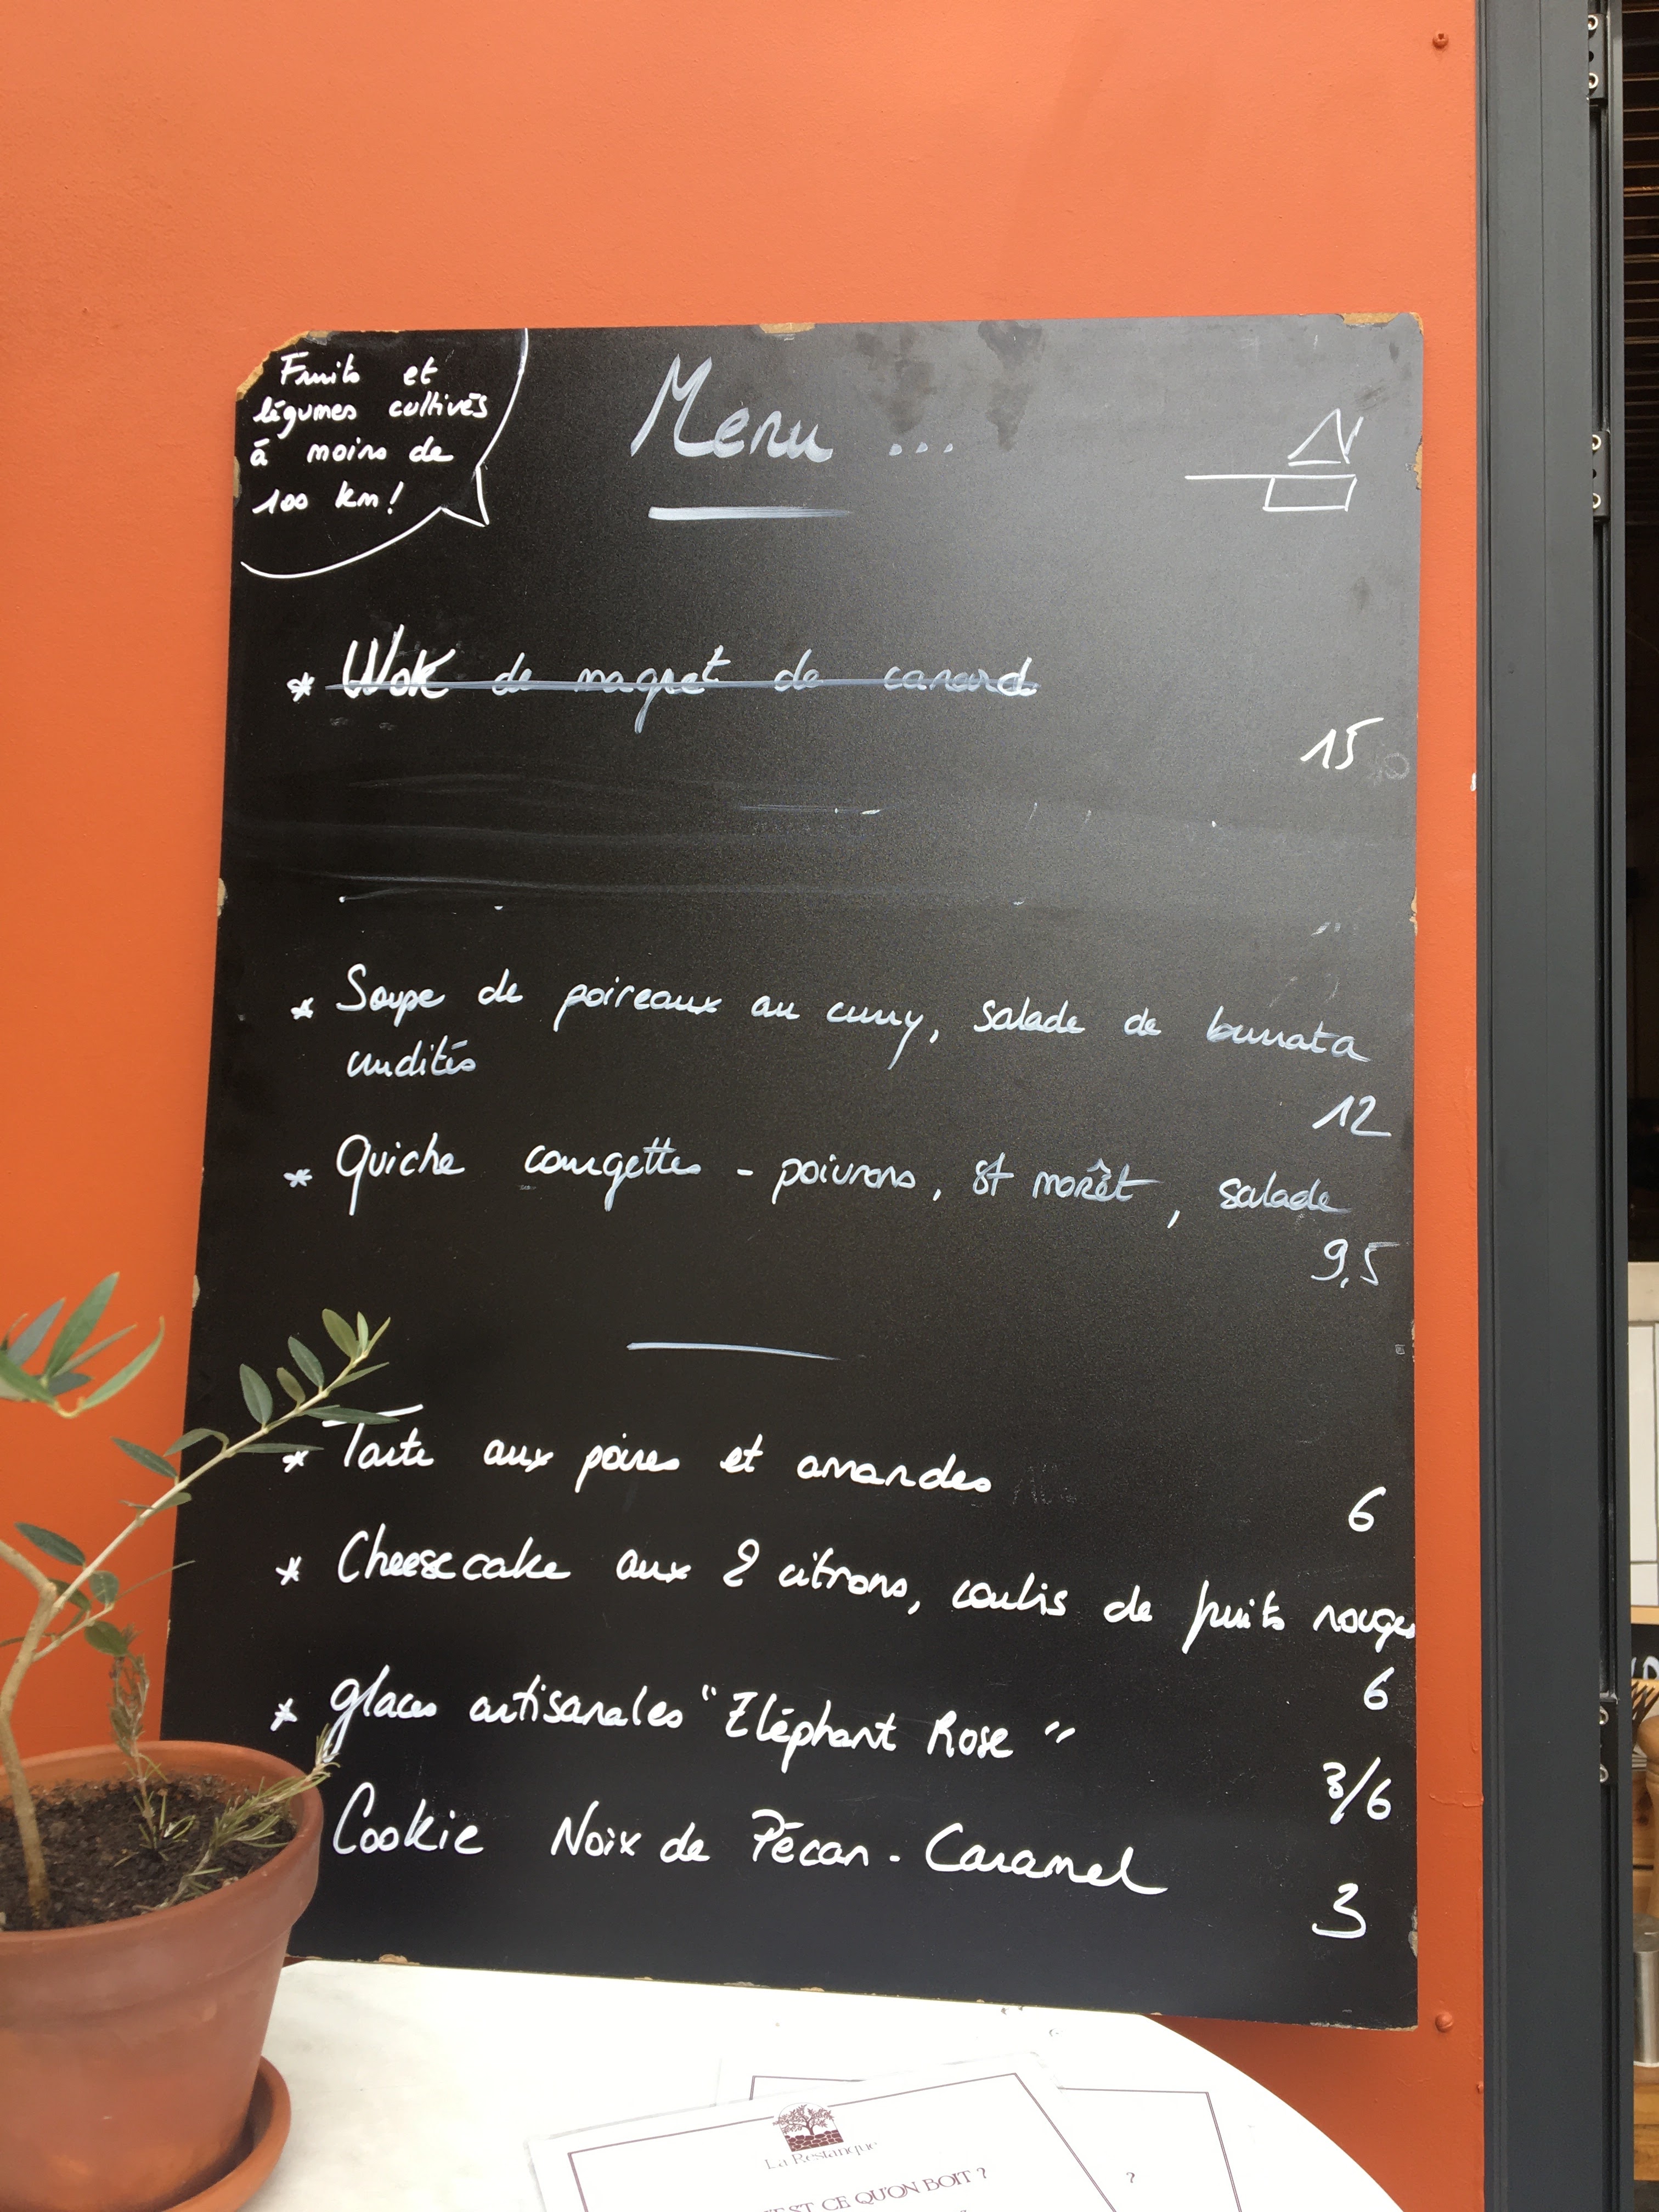 Fruits et
légumes cultivés
à moins de
100 km!
Menu ...
* Wok de magret de canard
15
* Soupe de poireaux au curry, salade de burrata
crudités
12
* Quiche courgettes - poivrons, St morêt, salade
9,5
* Tarte aux poires et amandes
6
* Cheesecake aux 2 citrons, coulis de fruits rouges
6
* glaces artisanales "Eléphant Rose"
3/6
Cookie Noix de Pécan - Caramel
3
La Restanque
EST CE QU'ON BOIT ?
?